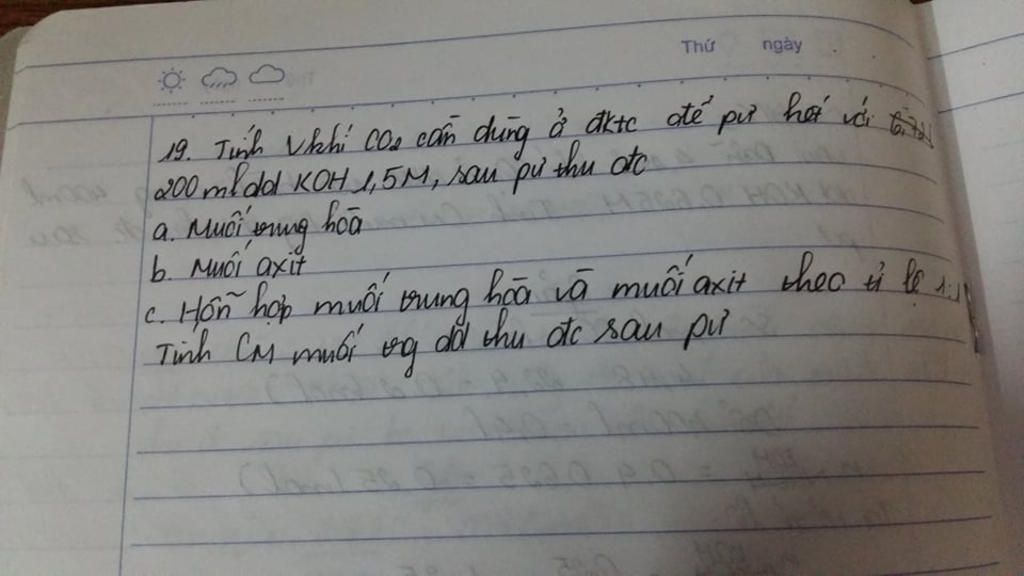 Thứ ngày
19. Tính Vkhí CO2 cần dùng ở đktc để pư hết với
200 ml dd KOH 1,5M, sau pư thu đc
a. Muối trung hòa
b. Muối axit
c. Hỗn hợp muối trung hòa và muối axit theo tỉ lệ 1:1
Tính CM muối trg dd thu đc sau pư